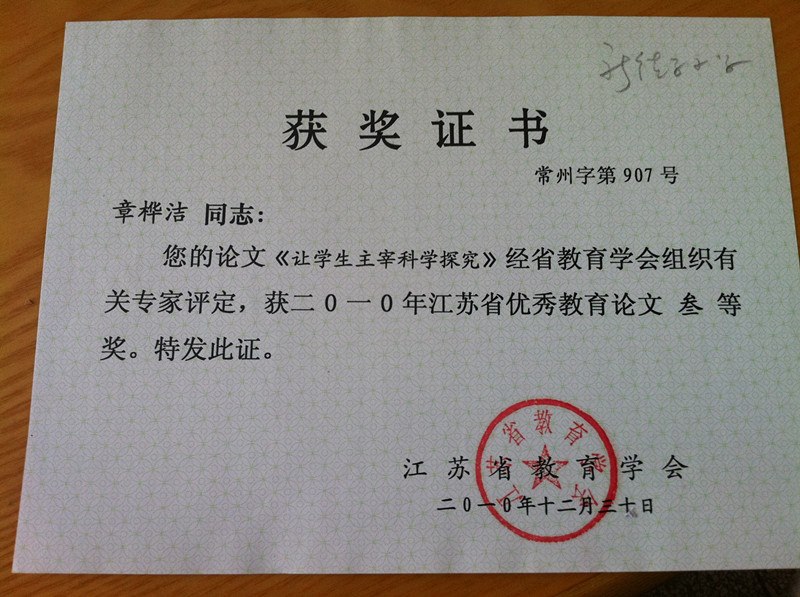 获奖证书
常州字第907号
章桦洁 同志：
您的论文《让学生主宰科学探究》经省教育学会组织有
关专家评定，获二0一0年江苏省优秀教育论文 叁 等
奖。特发此证。
江苏省教育学会
江苏省教育学会
二0一0年十二月三十日